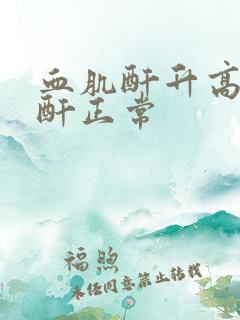 血肌酐升高
酐正常
福煦
未经同意禁止转载